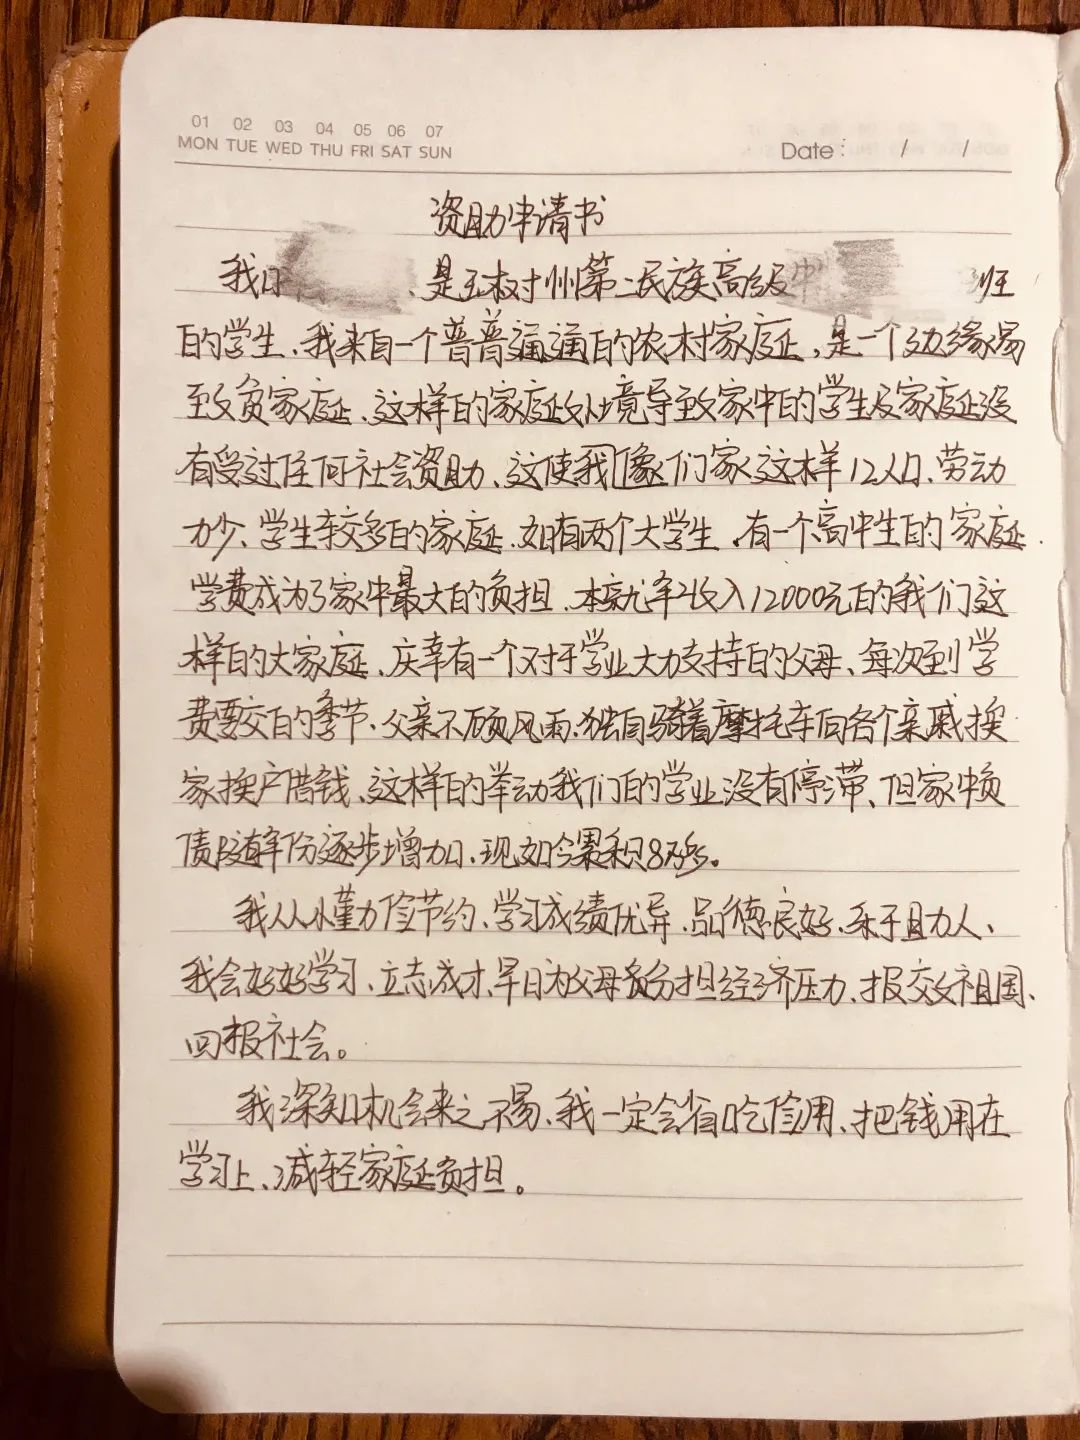 01 02 03 04 05 06 07
MON TUE WED THU FRI SAT SUN
Date: / /
资助申请书
我叫 、是玉树州第二民族高级中 班
的学生、我来自一个普普通通的农村家庭,是一个边缘易
致贫家庭、这样的家庭处境导致家中的学生及家庭没
有受过任何社会资助、这使我像们家这样12人口、劳动
力少、学生较多的家庭、如有两个大学生、有一个高中生的家庭、
学费成为了家中最大的负担、本就年收入12000元的我们这
样的大家庭、庆幸有一个对于学业大力支持的父母、每次到学
费要交的季节、父亲不顾风雨、独自骑着摩托车向各个亲戚挨
家挨户借钱、这样的举动我们的学业没有停滞、但家中负
债随年份逐步增加、现如今累积8万多。
我从小勤力俭节约、学习成绩优异、品德良好、乐于助人、
我会好好学习、立志成才、早日为父母分担经济压力、报效祖国、
回报社会。
我深知机会来之不易、我一定会省吃俭用、把钱用在
学习上、减轻家庭负担。